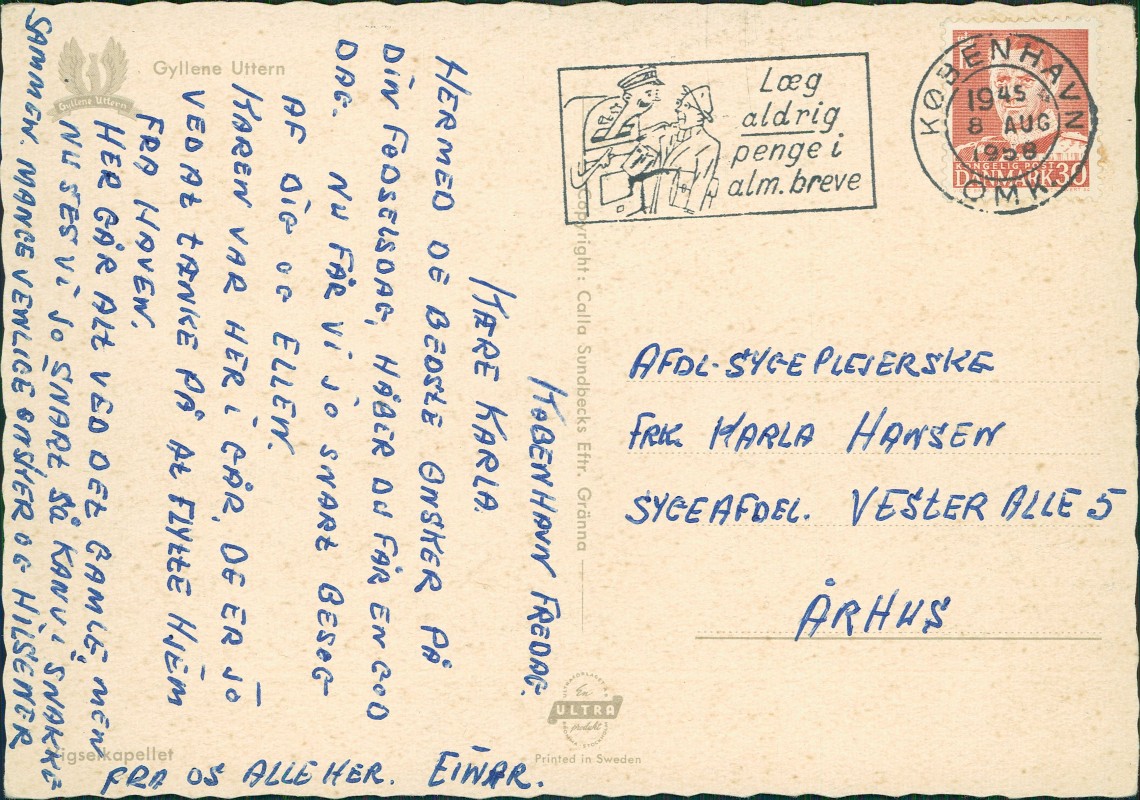 Gyllene Uttern
Gyllene Uttern
KØBENHAVN FREDAG.
KÆRE KARLA.
HERMED DE BEDSTE ØNSKER PÅ
DIN FØDSELSDAG, HÅBER DU FÅR EN GOD
DAG. NU FÅR VI JO SNART BESØG
AF DIG OG ELLEN.
KAREN VAR HER I GÅR, DE ER JO
VED AT TÆNKE PÅ AT FLYTTE HJEM
FRA HAVEN.
HER GÅR ALT VED DET GAMLE, MEN
NU SES VI JO SNART SÅ KAN VI SNAKKE
SAMMEN. MANGE VENLIGE ØNSKER OG HILSENER
FRA OS ALLE HER. EINAR.
Vigselkapellet
Copyright: Calla Sundbecks Eftr. Gränna
En
ULTRA
produkt
Printed in Sweden
POST
Læg
aldrig
penge i
alm. breve
KØBENHAVN
1945
8 AUG
1958
OMK.
KONGELIG POST
DANMARK 30
AFDL. SYGEPLEJERSKE
FRK. KARLA HANSEN
SYGEAFDEL. VESTER ALLE 5
ÅRHUS